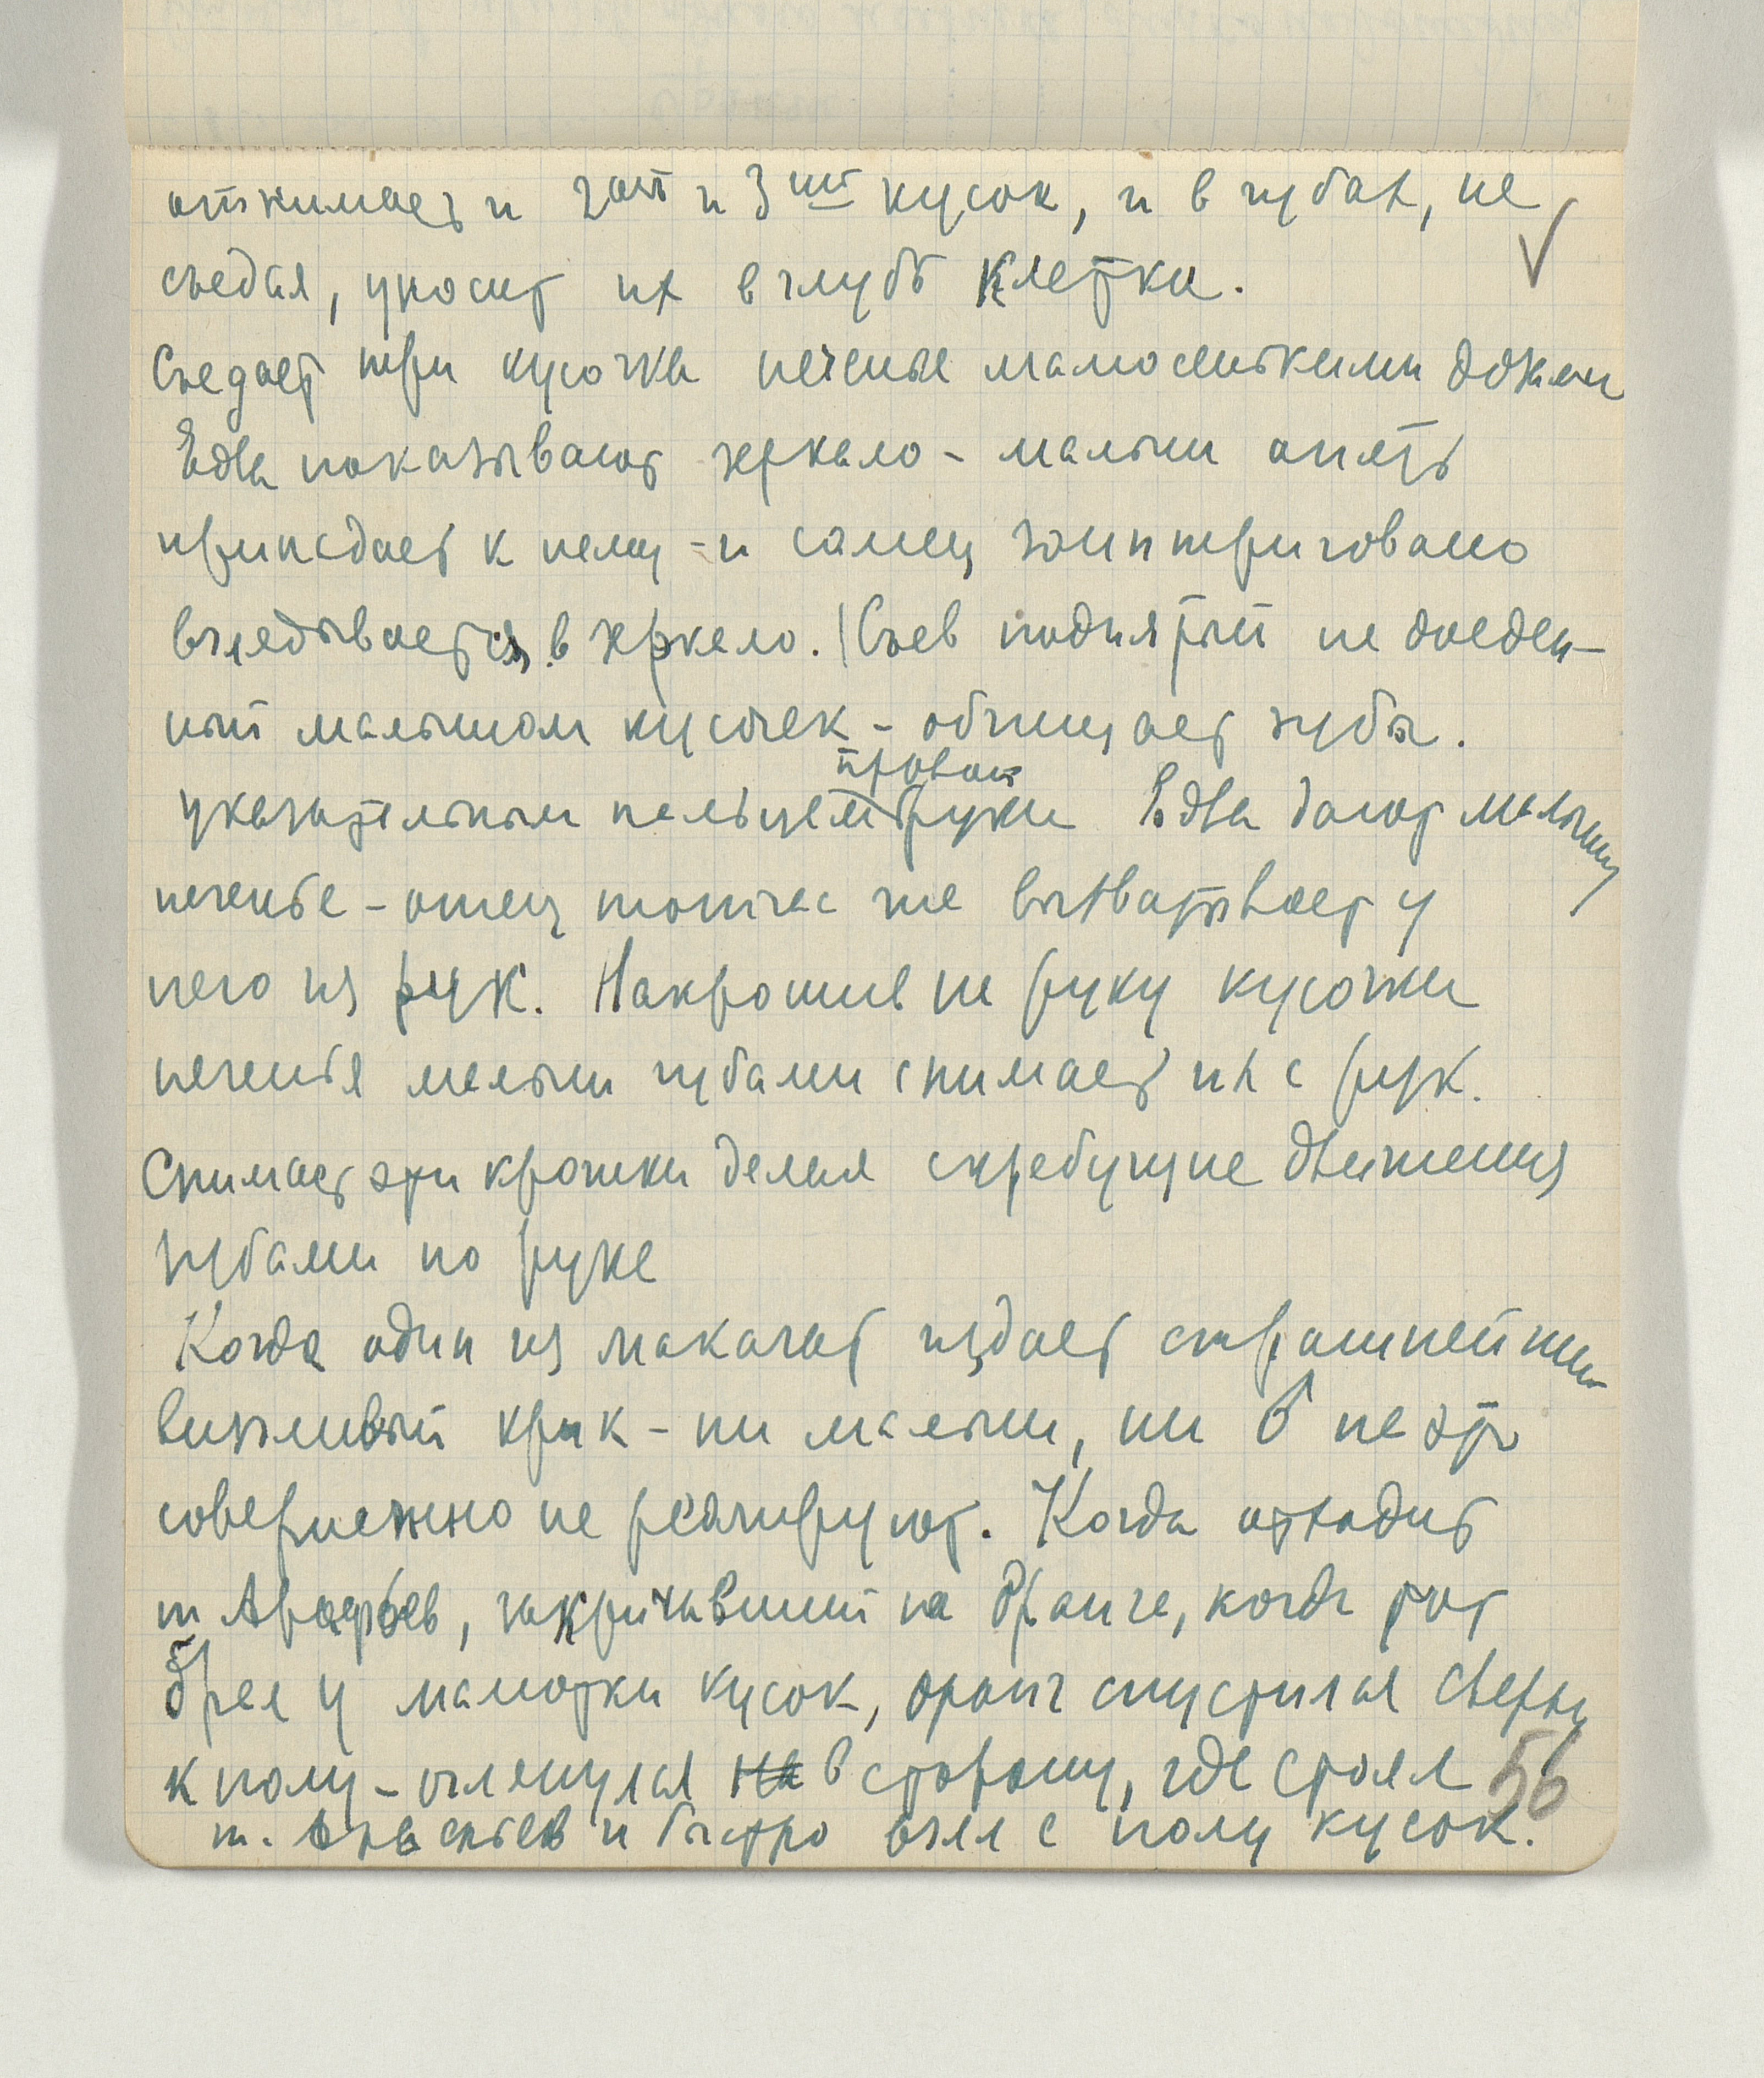 отнимает и 2ой и 3ий кусок, и в губах, не
съедая, уносит их вглубь клетки.
Съедает три кусочка печенья малюсенькими
Едва показывают зеркало - малыш опять
припадает к нему - и самец заинтриговано
вглядывается в зеркало. (Съев поднятый не доеден-
ный малышом кусочек - обчищает зубы.
указательным пальцем правой руки Едва дают малышу
печенье - отец тотчас же выхватывает у
него из рук. Накрошив на руку кусочки
печенья малыш губами снимает их с рук.
Снимает эти крошки делая скребущие движения
губами по руке
Когда один из макачат издает страшнейший
визгливый крик - ни малыш, ни ♂ на это
совершенно не реагируют. Когда отходит
т, закричавший на Оранга, когда тот
брал у самотки кусок, оранг спустился сверху
к полу - оглянулся на в сторону, где стоял
т. и быстро взял с полу кусок.
56